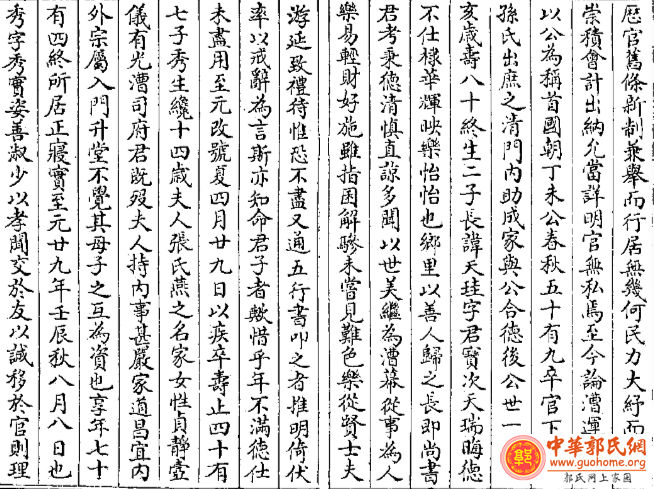 歷官舊條新制兼舉而行居無幾何民力大紓而
崇積會計出納允當詳明官無私焉至今論漕運
以公為稱首國朝丁未公春秋五十有九卒官下
孫氏出庶之清門內助成家與公合德後公世一
亥歲壽八十終生二子長諱天珪字君寳次天瑞晦德
不仕棣華輝映樂怡怡也鄉里以善人歸之長即尚書
君考秉德清慎直諒多聞以世美繼為漕幕從事為人
樂易輕財好施雖指囷解驂未嘗見難色樂從賢士夫
游延致禮待惟恐不盡又通五行書叩之者推明倚伏
率以戒辭為言斯亦知命君子者歟惜乎年不滿德仕
未盡用至元改號夏四月廿九日以疾卒壽止四十有
七子秀生纔十四歲夫人張氏燕之名家女性貞靜壼
儀有光漕司府君既歿夫人持內事甚嚴家道昌宜內
外宗屬入門升堂不覺其母子之互為資也享年七十
有四終所居正寢實至元廿九年壬辰秋八月八日也
秀字秀實姿善淑少以孝聞交於友以誠移於官則理
中華郭氏網
www.guohome.org
郭氏网上家园